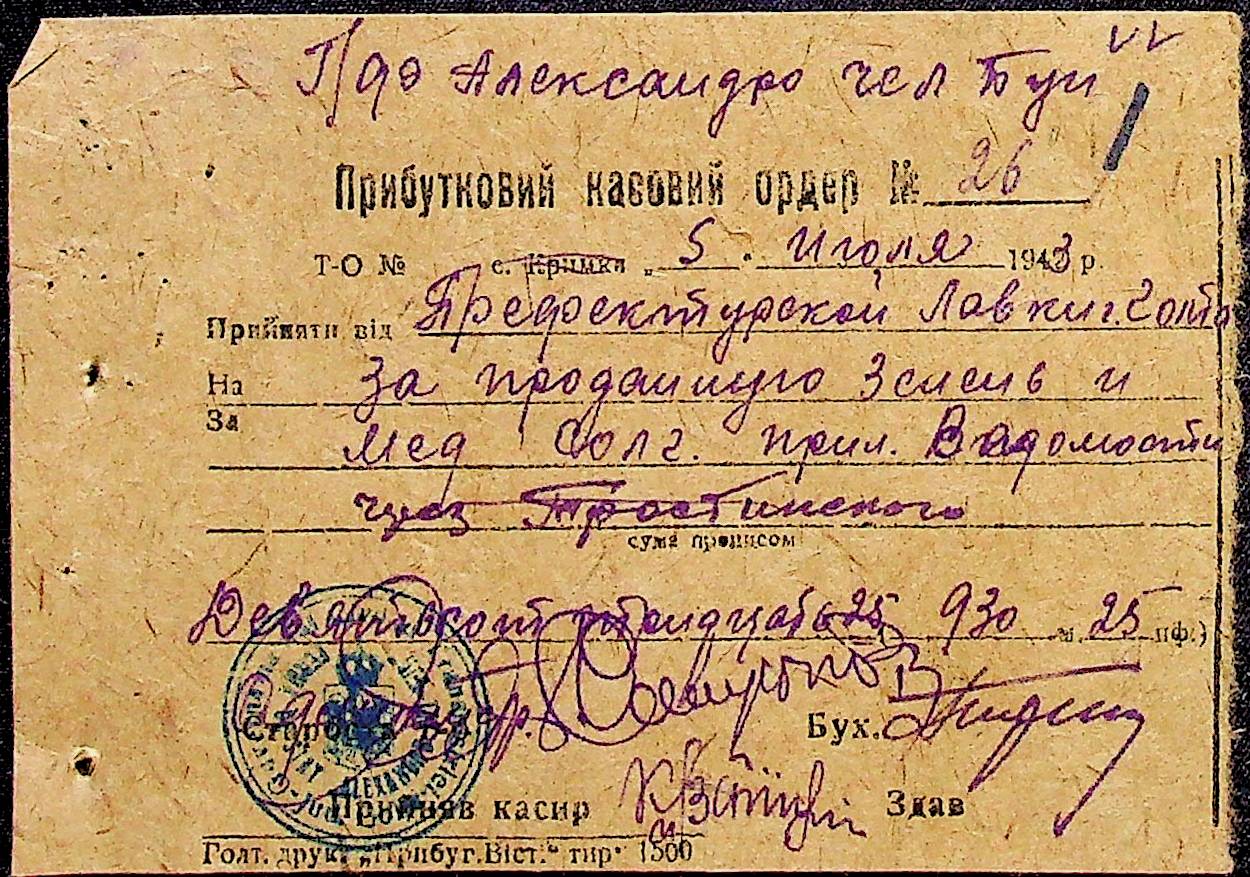 Александро
Прибутковий касовий ордер № 26
Т-О № с. Кримки „ 5 " Июля 1943 р
Прийняти від Префектурской Лавки г. Голта
На за проданную Зелень и
За
мед Сол г. прил. Ведомости
через Тростинского
сума прописом
Девятьсот тридцать 25 930 м. 25 пф.)
Староста
Бух.
Прийняв касир Здав
Голт. друк. „Прибуг.Віст." тир. 1500